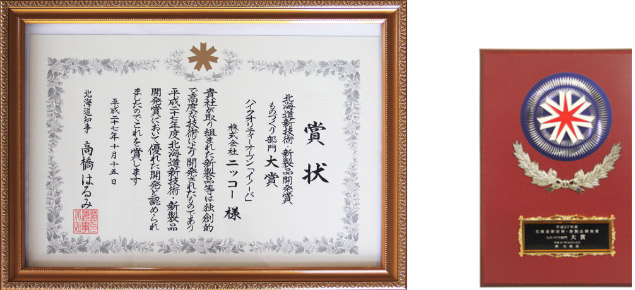 賞状
北海道新技術・新製品開発賞
ものづくり部門 大賞
ハイクオリティーオーブン「イノーバ」
株式会社 ニッコー 様
貴社が取り組まれた新製品等は独創的
で高度な技術により開発されたものであり
平成二十七年度北海道新技術・新製品
開発賞において優れた開発と認められ
ましたのでこれを賞します
平成二十七年十月十五日
北海道知事 高橋はるみ
平成27年度
北海道新技術・新製品開発賞
ものづくり部門 大賞